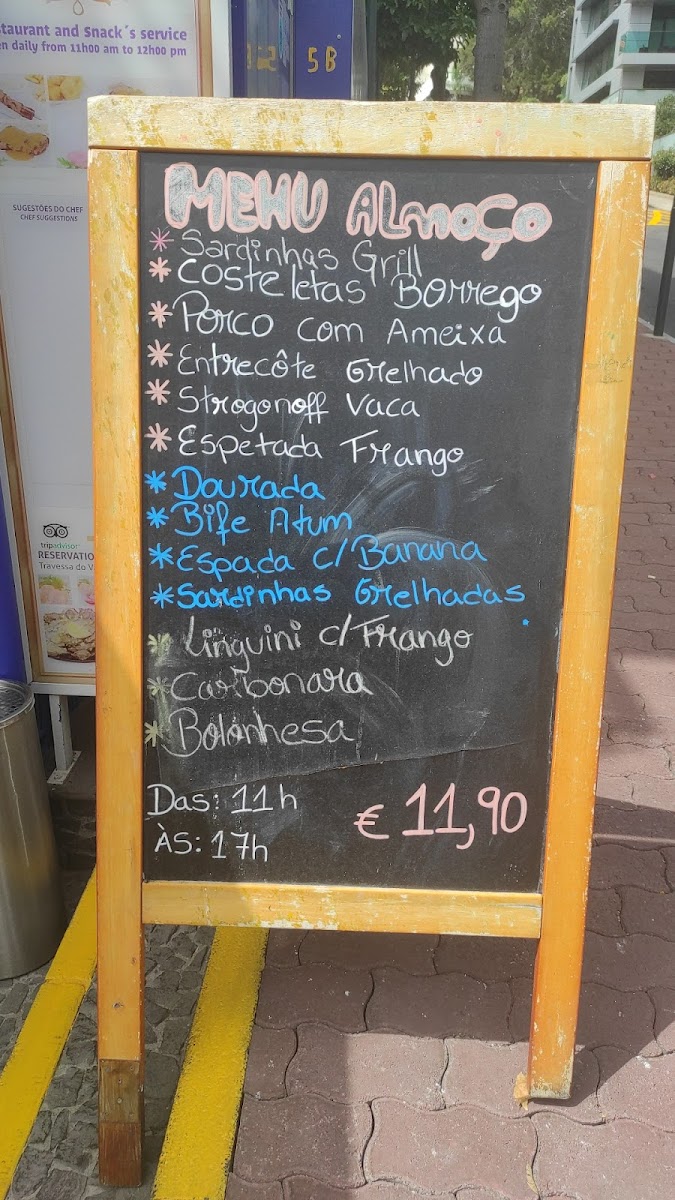 staurant and Snack´s service
en daily from 11h00 am to 12h00 pm
5B
SUGESTÕES DO CHEF
CHEF SUGGESTIONS
MENU ALmoço
* Sardinhas Grill
* Costeletas Borrego
* Porco com Ameixa
* Entrecôte Grelhado
* Strogonoff Vaca
* Espetada Frango
* Dourada
* Bife Atum
* Espada c/Banana
* Sardinhas Grelhadas
* Linguini c/Frango
* Carbonara
* Bolonhesa
Das: 11h
€ 11,90
ÀS: 17h
tripadvisor
RESERVATIO
Travessa do V